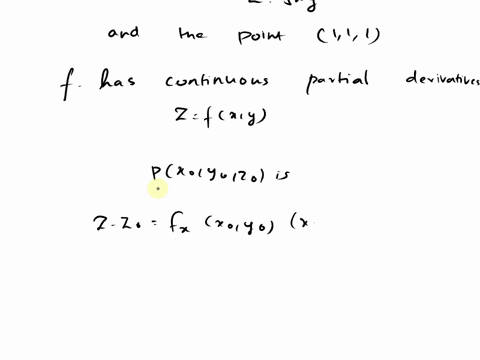 and the point (1,1,1)
f. has continuous partial derivatives
Z = f(x,y)
P(x0,y0,z0) is
Z-Z0 = fx (x0,y0) (x